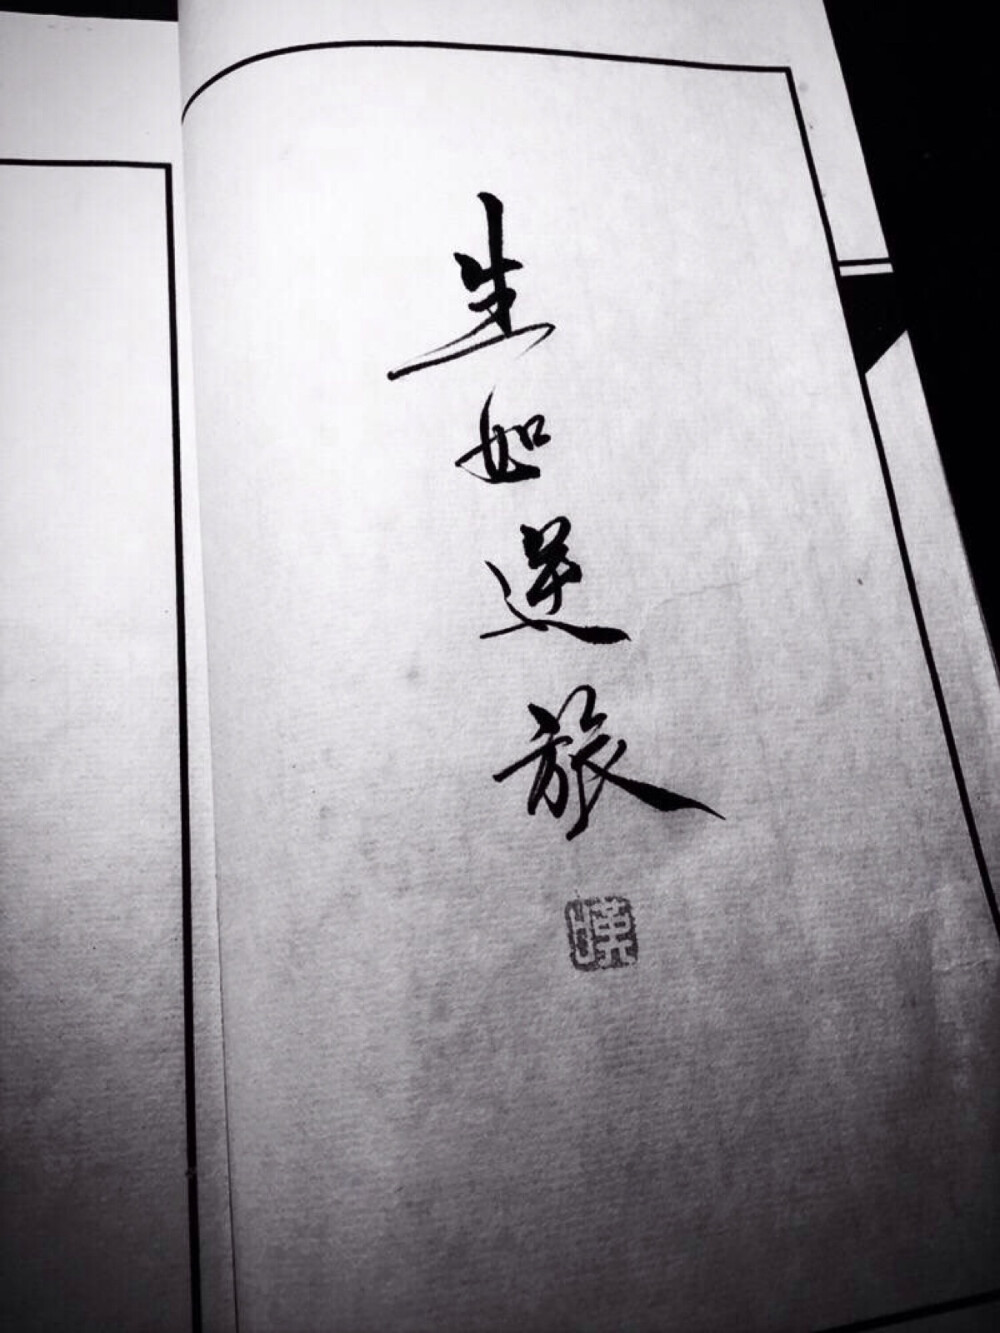 生如逆旅